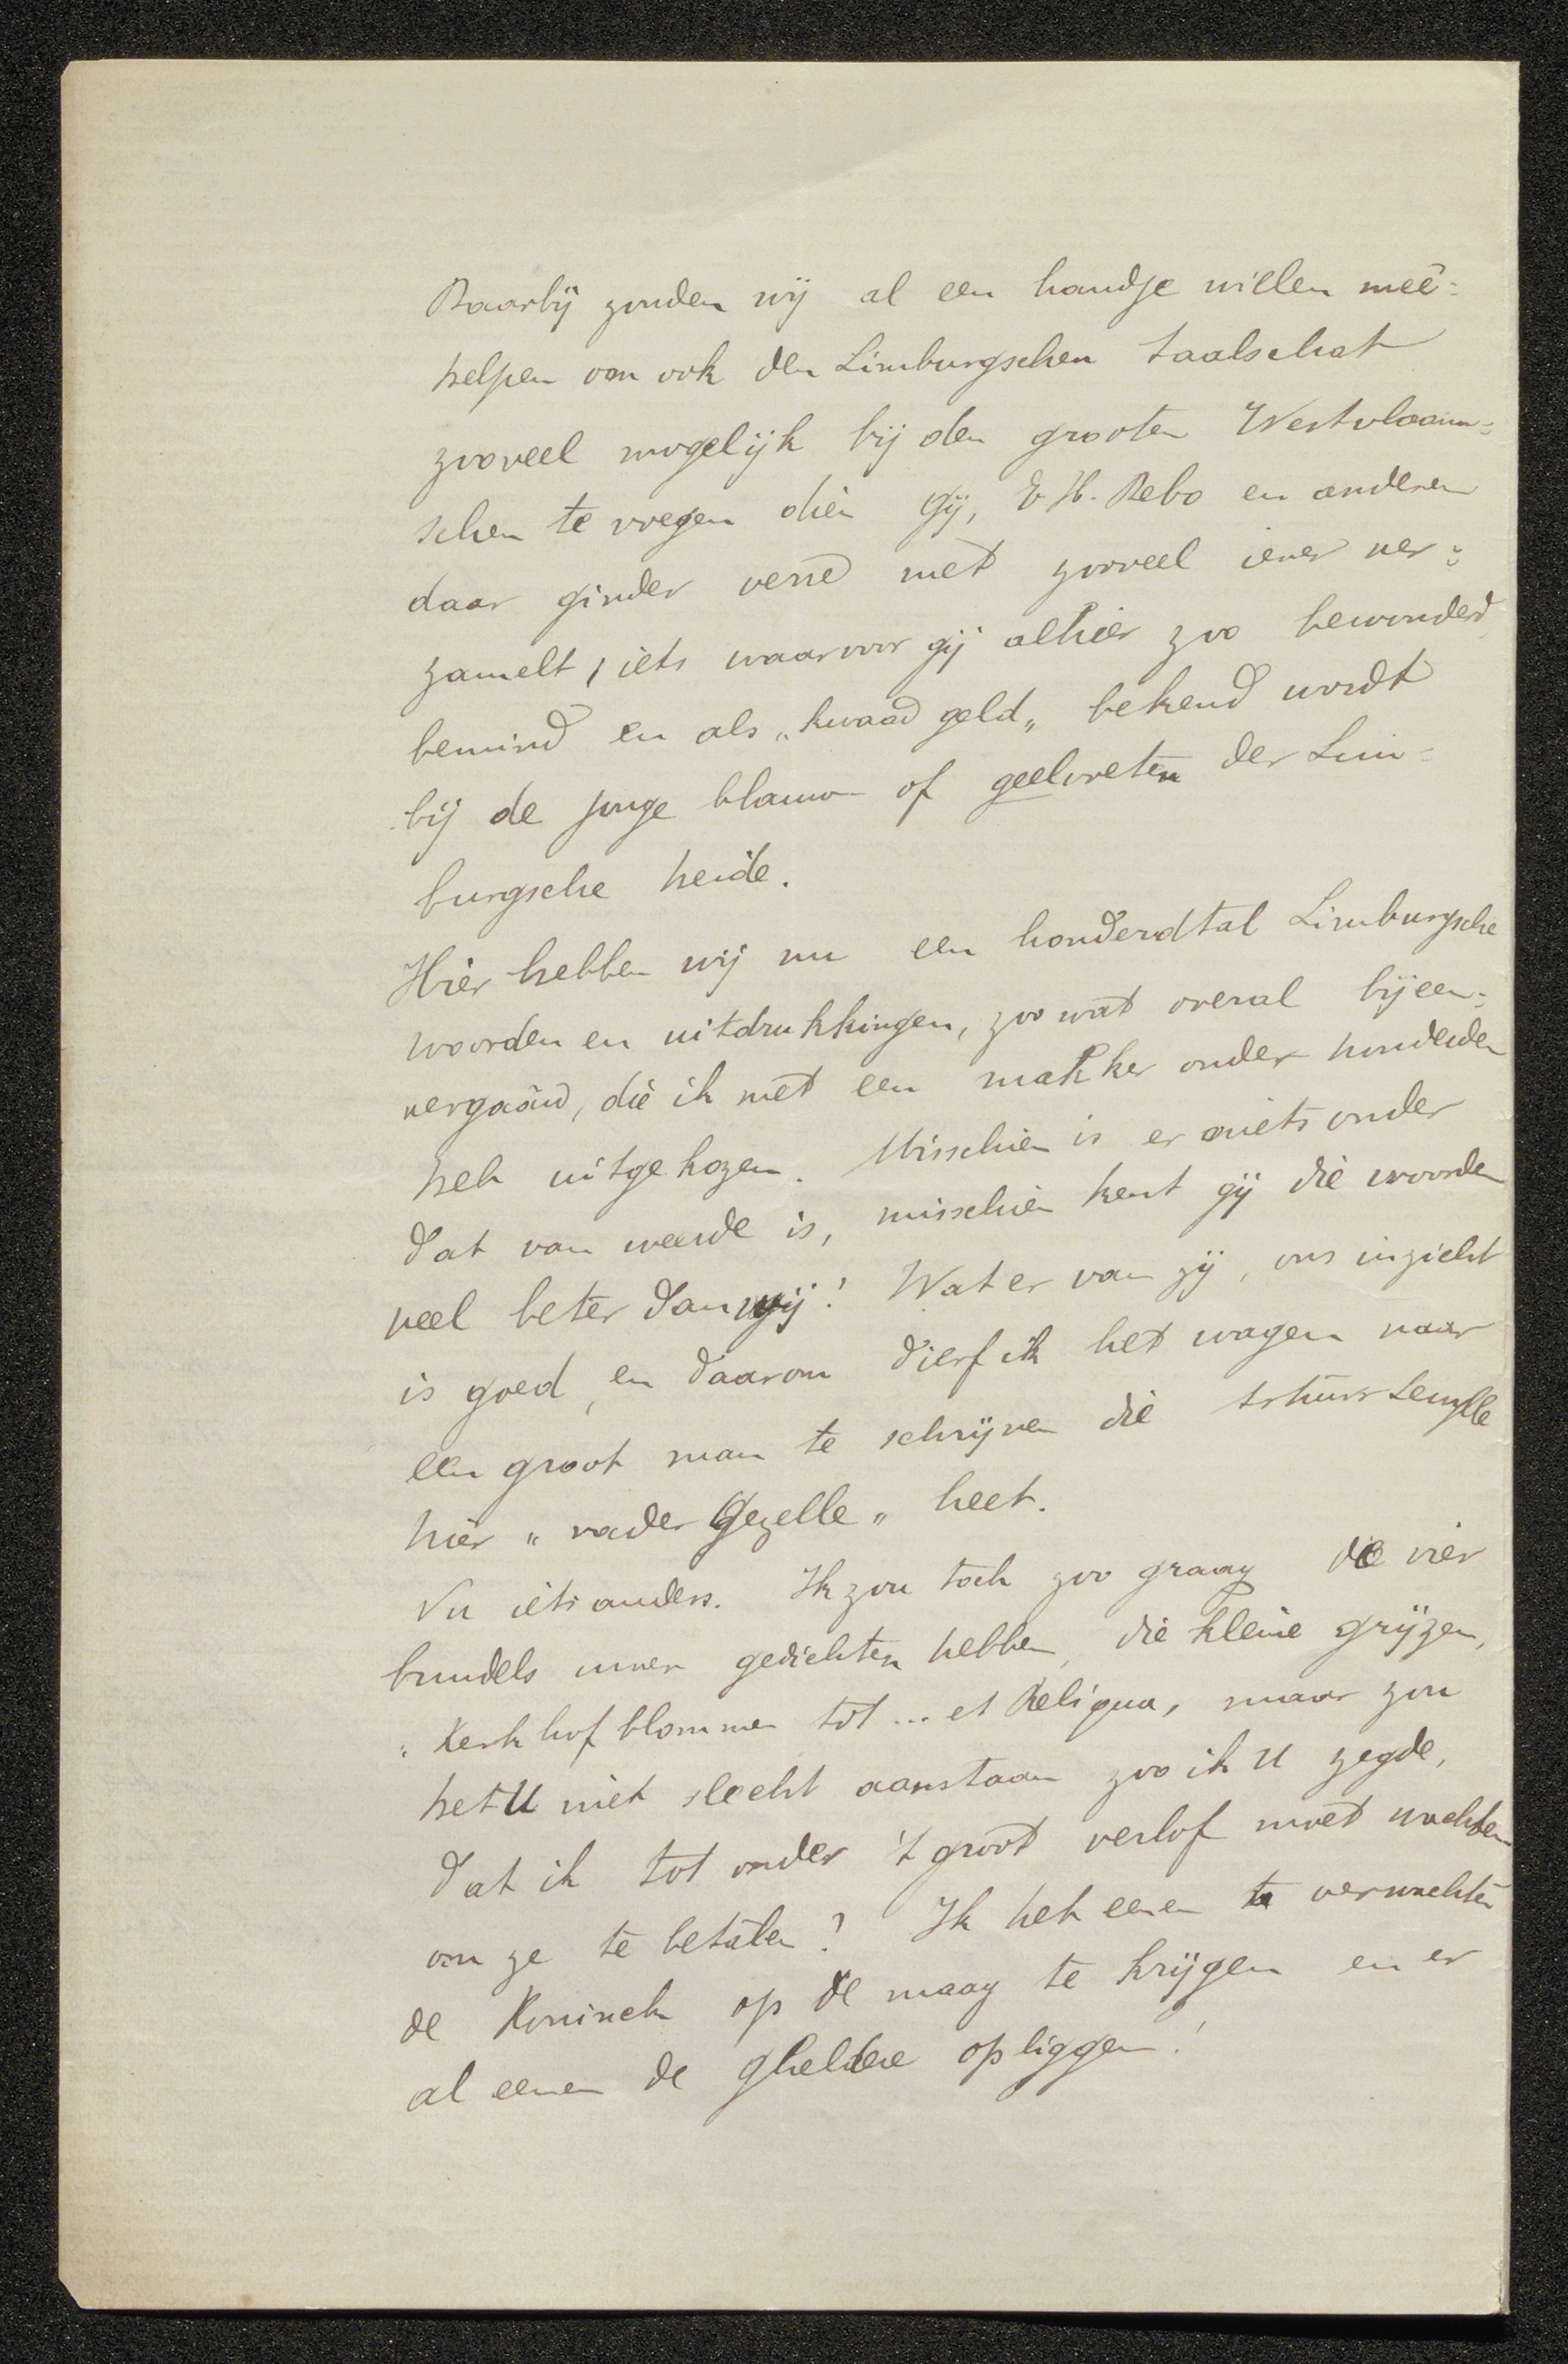 Daarbij zouden wij al een handje willen meê=
helpen om ook den Limburgschen taalschat
zooveel mogelijk bij den grooten Westvlaam=
schen te voegen dien Gij, E. H. Debo en anderen
daar ginder verre met zooveel iever ver=
zamelt, iets waarvoor gij alhier zoo bewonderd,
bemind en als „kwaad geld„ bekend wordt
bij de jonge blauw- of geelvreten der Lim=
burgsche heide.
Hier hebben wij nu een honderdtal Limburgsche
woorden en uitdrukkingen, zoo wat overal bijeen=
vergaârd, die ik met een makker onder honderden
heb uitgekozen. Misschien is er niets onder
dat van weerde is, misschien kent gij die woorden
veel beter dan wij! Wat er van zij, ons inzicht
is goed, en daarom dierf ik het wagen naar
een groot man te schrijven die
hier „vader Gezelle„ heet.
Nu iets anders. Ik zou toch zoo graag de vier
bundels uwer gedichten hebben, die kleine grijzen,
„Kerkhofblommen tot ... et Reliqua, maar zou
het U niet slecht aanstaan zoo ik U zegde,
dat ik tot onder 't groot verlof moet wachten
om ze te betalen? Ik heb eenen te verwachten
de Koninck op de maag te krijgen en er
al eenen de Gheldere op liggen!